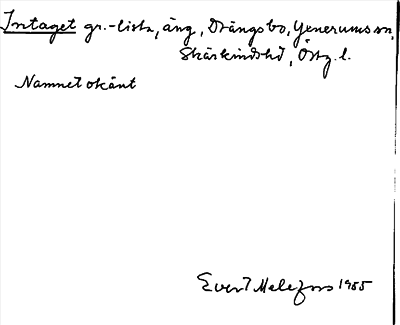 Intaget gr.-lista, äng, Drängsbo, Yxnerums sn,
Skärkinds hd, Östg.l.
Namnet okänt
Evert Melefors 1955